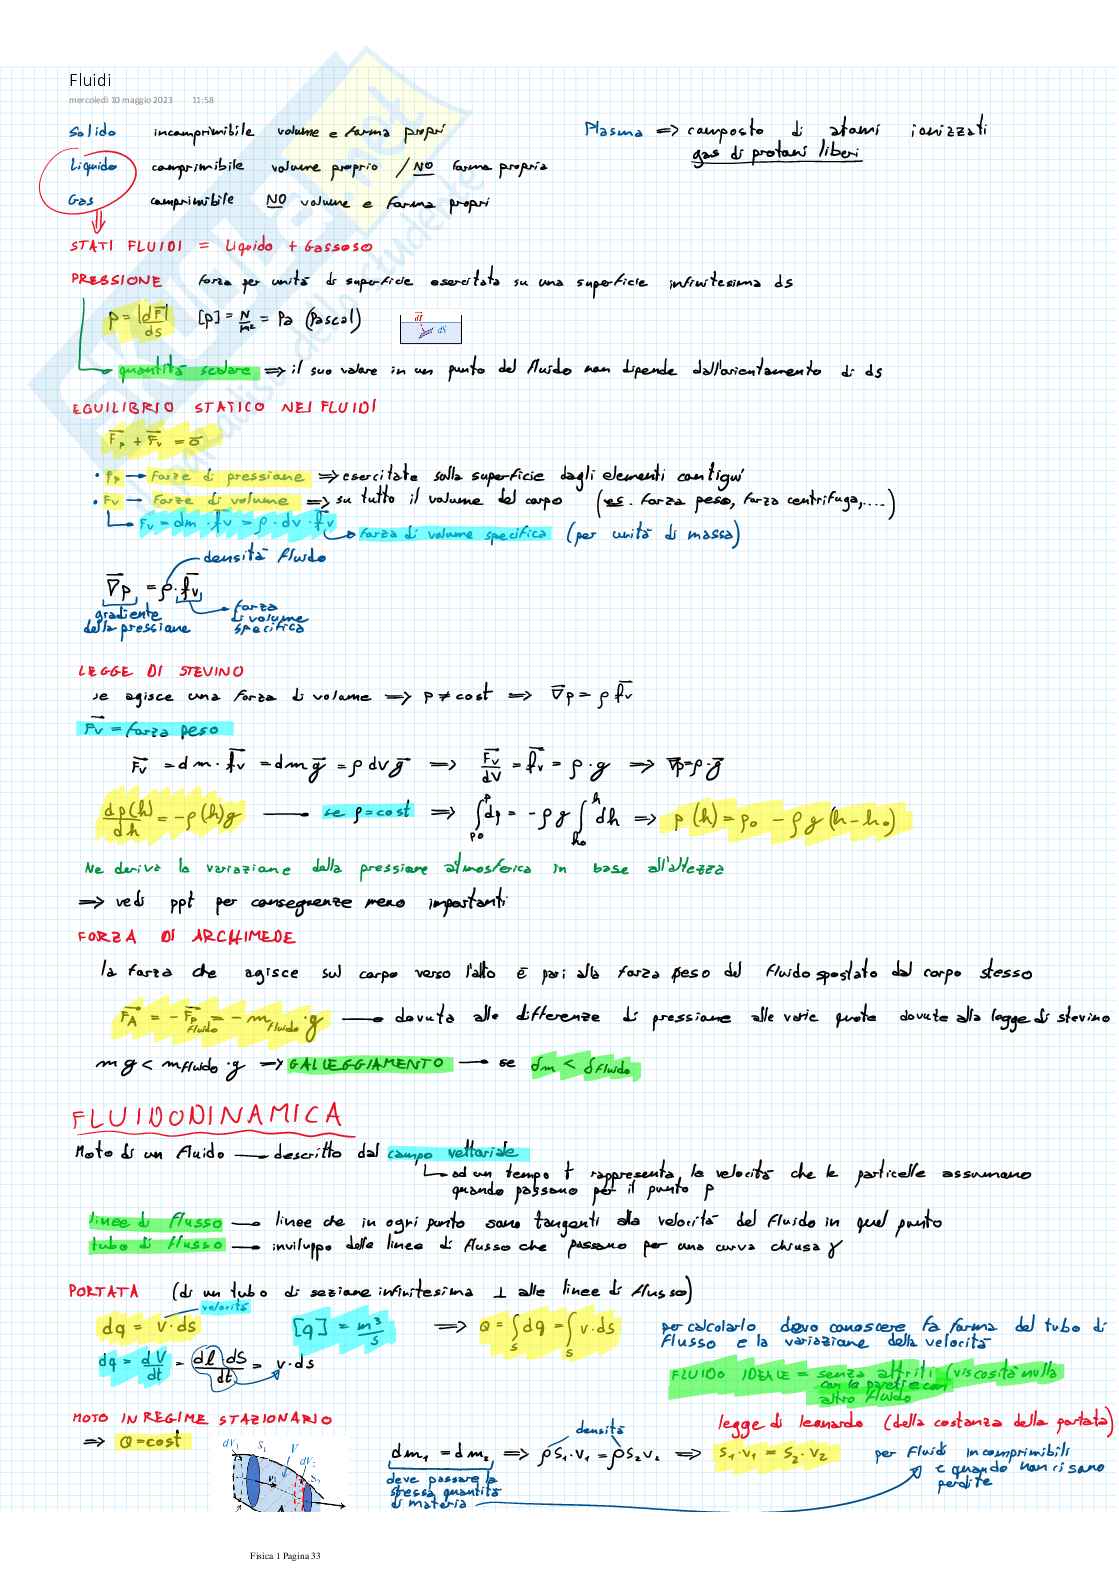 Fluidi
mercoledì 10 maggio 2023 11:58
Solido incomprimibile volume e forma propri
Plasma => composto di atomi ionizzati
gas di protoni liberi
Liquido comprimibile volume proprio / NO forma propria
Gas comprimibile NO volume e forma propri
STATI FLUIDI = Liquido + Gassoso
PRESSIONE forza per unità di superficie esercitata su una superficie infinitesima ds
p = |dF̅|/ds [p] = N/m² = Pa (Pascal)
dF dS
quantità scalare => il suo valore in un punto del fluido non dipende dall'orientamento di ds
EQUILIBRIO STATICO NEI FLUIDI
F̅p + F̅v = 0̅
• Fp → Forze di pressione => esercitate sulla superficie dagli elementi contigui
• Fv → Forze di volume => su tutto il volume del corpo (es. forza peso, forza centrifuga,....)
Fv = dm · f̅v = ρ · dv · f̅v → forza di volume specifica (per unità di massa)
densità fluido
∇̅p = ρ · f̅v
gradiente della pressione
forza di volume specifica
LEGGE DI STEVINO
se agisce una forza di volume => p ≠ cost => ∇̅p = ρ f̅v
F̅v = forza peso
F̅v = dm · f̅v = dm g̅ = ρ dv g̅ => F̅v/dV = f̅v = ρ · g => ∇p = ρ · g̅
dp(h)/dh = -ρ(h)g — se ρ = cost => ∫p0^p dp = -ρg ∫h0^h dh => p(h) = p0 - ρg(h-h0)
Ne deriva la variazione della pressione atmosferica in base all'altezza
=> vedi ppt per conseguenze meno importanti
FORZA DI ARCHIMEDE
la forza che agisce sul corpo verso l'alto è pari alla forza peso del fluido spostato dal corpo stesso
F̅A = -F̅p fluido = -m fluido · g → dovuta alle differenze di pressione alle varie quote dovute alla legge di stevino
mg < m fluido · g => GALLEGGIAMENTO → se δm < δfluido
FLUIDODINAMICA
Moto di un fluido → descritto dal campo vettoriale
ad un tempo t rappresenta la velocità che le particelle assumono
quando passano per il punto p
linee di flusso → linee che in ogni punto sono tangenti alla velocità del fluido in quel punto
tubo di flusso → inviluppo delle linee di flusso che passano per una curva chiusa γ
PORTATA (di un tubo di sezione infinitesima ⊥ alle linee di flusso)
velocità
dq = v · ds [q] = m³/s => Q = ∫s dq = ∫s v · ds
per calcolarlo devo conoscere la forma del tubo di
flusso e la variazione della velocità
dq = dV/dt = dl ds/dt = v · ds
FLUIDO IDEALE = senza attriti (viscosità nulla
con la pareti e con
altro fluido
MOTO IN REGIME STAZIONARIO
legge di leonardo (della costanza della portata)
=> Q = cost
densità
dm1 = dm2 => ρS1 · v1 = ρS2 v2 => S1 · v1 = S2 · v2
per fluidi incomprimibili
e quando non ci sono
perdite
deve passare la
stessa quantità
di materia
dV1 S1 V dV2 S2
Fisica 1 Pagina 33